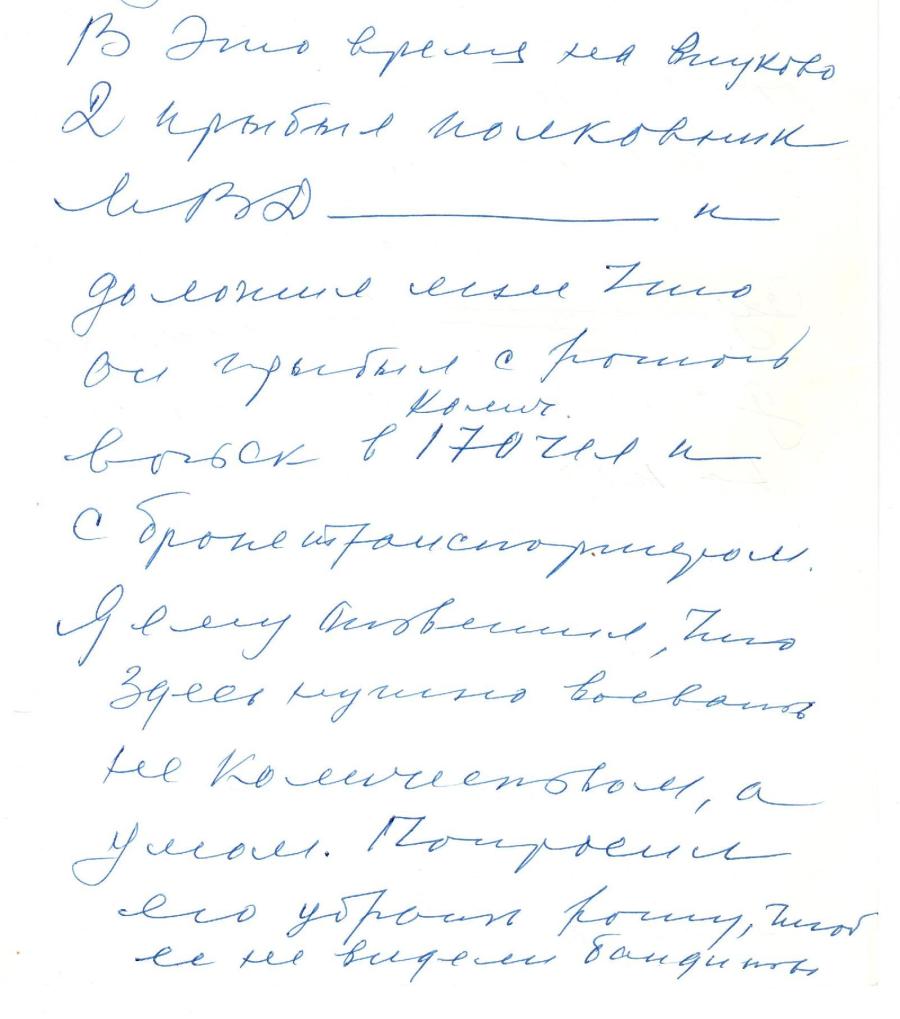 В это время на Внуково
2 прибыл полковник
МВД ________ и
доложил мне что
он прибыл с ротой
колич.
войск в 170 чел и
с бронетранспортером.
Я ему ответил, что
здесь нужно воевать
не количеством, а
умом. Попросил
его убрать роту, чтоб
ее не видели бандиты